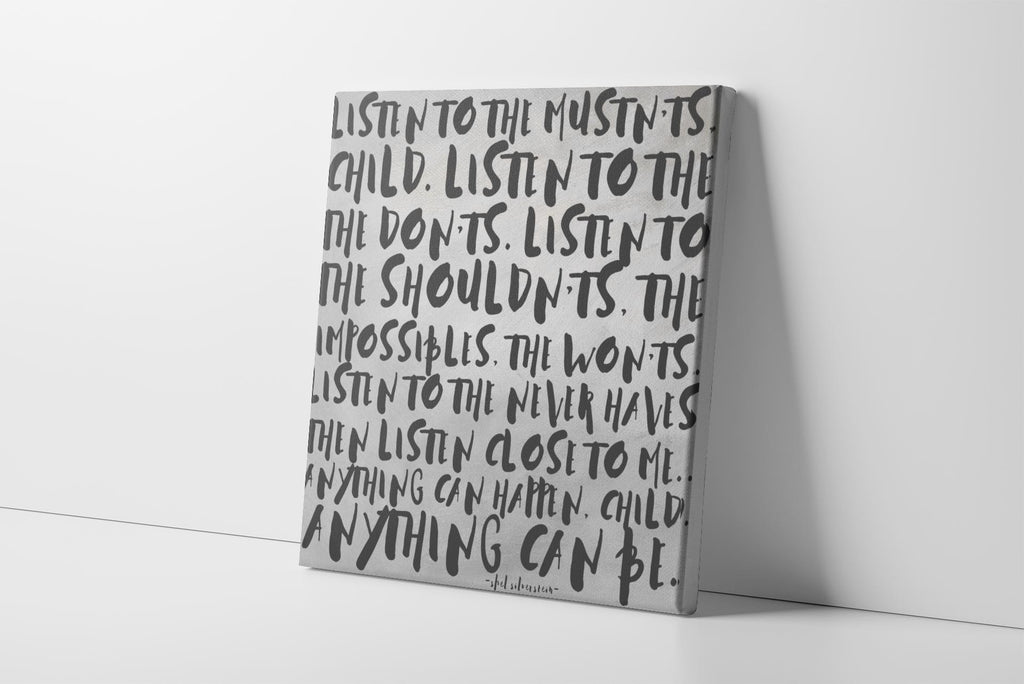 LISTEN TO THE MUSTN'TS,
CHILD. LISTEN TO THE
THE DON'TS. LISTEN TO
THE SHOULDN'TS, THE
IMPOSSIBLES, THE WON'TS.
LISTEN TO THE NEVER HAVES
THEN LISTEN CLOSE TO ME..
ANYTHING CAN HAPPEN, CHILD.
ANYTHING CAN BE.
-shel silverstein-